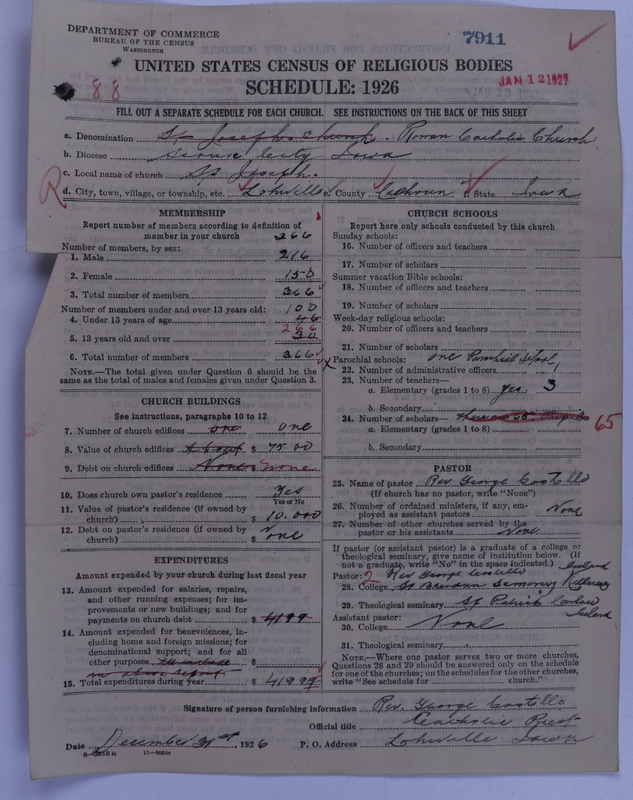 DEPARTMENT OF COMMERCE
BUREAU OF THE CENSUS
WASHINGTON
7911
UNITED STATES CENSUS OF RELIGIOUS BODIES
JAN 12 1927
88
SCHEDULE: 1926
FILL OUT A SEPARATE SCHEDULE FOR EACH CHURCH. SEE INSTRUCTIONS ON THE BACK OF THIS SHEET
a. Denomination St Josephs Church. Roman Catholic Church
b. Diocese Sioux City Iowa
c. Local name of church St Joseph.
d. City, town, village, or township, etc. Lohrville e. County Calhoun f. State Iowa
MEMBERSHIP
Report number of members according to definition of
member in your church 366
Number of members, by sex:
1. Male 216
2. Female 150
3. Total number of members 366
Number of members under and over 13 years old: 100
4. Under 13 years of age
266
5. 13 years old and over
6. Total number of members 366
NOTE.—The total given under Question 6 should be the
same as the total of males and females given under Question 3.
CHURCH BUILDINGS
See instructions, paragraphs 10 to 12
7. Number of church edifices one one
8. Value of church edifices $ 7500
9. Debt on church edifices None $ None
10. Does church own pastor's residence Yes
Yes or No
11. Value of pastor's residence (if owned by
church) $ 10.000
12. Debt on pastor's residence (if owned by
church) $ None
EXPENDITURES
Amount expended by your church during last fiscal year
13. Amount expended for salaries, repairs,
and other running expenses; for im-
provements or new buildings; and for
payments on church debt $ 4199
14. Amount expended for benevolences, in-
cluding home and foreign missions; for
denominational support; and for all
other purposes $
in above report
15. Total expenditures during year $ 4199
CHURCH SCHOOLS
Report here only schools conducted by this church
Sunday schools:
16. Number of officers and teachers
17. Number of scholars
Summer vacation Bible schools:
18. Number of officers and teachers
19. Number of scholars
Week-day religious schools:
20. Number of officers and teachers
21. Number of scholars
Parochial schools: one Parochial School
22. Number of administrative officers
23. Number of teachers—
a. Elementary (grades 1 to 8) yes 3
b. Secondary
24. Number of scholars— 65
a. Elementary (grades 1 to 8)
b. Secondary
PASTOR
25. Name of pastor Rev George Costello
(If church has no pastor, write "None")
26. Number of ordained ministers, if any, em-
ployed as assistant pastors None
27. Number of other churches served by the
pastor or his assistants None
If pastor (or assistant pastor) is a graduate of a college or
theological seminary, give name of institution below. (If
not a graduate, write "No" in the space indicated.) Ireland
Pastor: Rev George Costello
28. College St Brendan Seminary Killarney
29. Theological seminary St Patrick Carlow
Ireland
Assistant pastor:
30. College None
31. Theological seminary
NOTE.—Where one pastor serves two or more churches,
Questions 28 and 29 should be answered only on the schedule
for one of the churches; on the schedules for the other churches,
write "See schedule for church."
Signature of person furnishing information Rev. George Costello
Official title Catholic Priest
Date December 31st, 1926 P. O. Address Lohrville Iowa